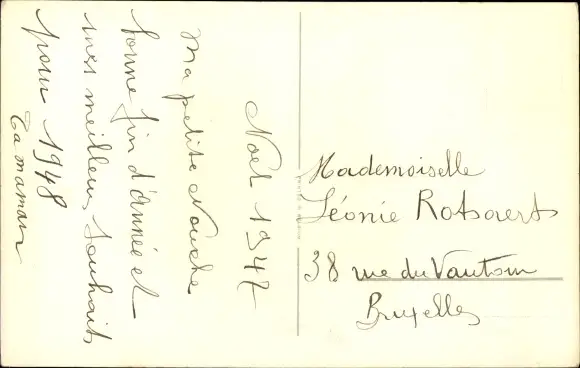 Noël 1947
Ma petite Nouche
bonne fin d'année et
mes meilleurs souhaits
pour 1948
Ta maman
Mademoiselle
Léonie Rotsaerts
38 rue du Vautour
Bruxelles